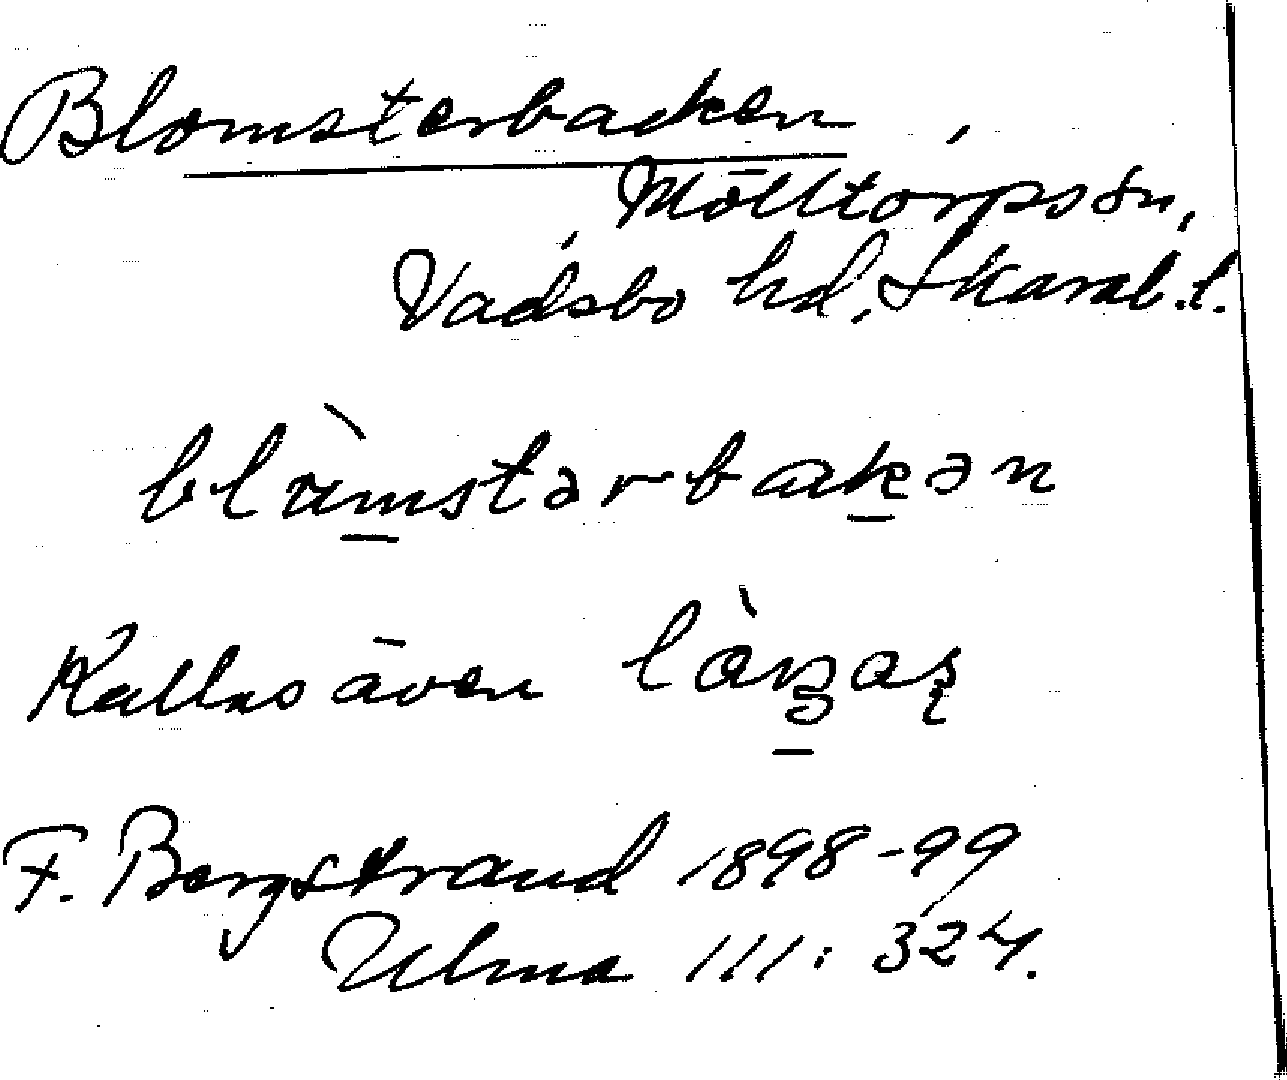 Blomsterbacken,
Mölltorps sn,
Vadsbo hd, Skarab. l.
blämstərbakən
Kallas även
F. Bergstrand 1898-99
Ulma 111: 324.